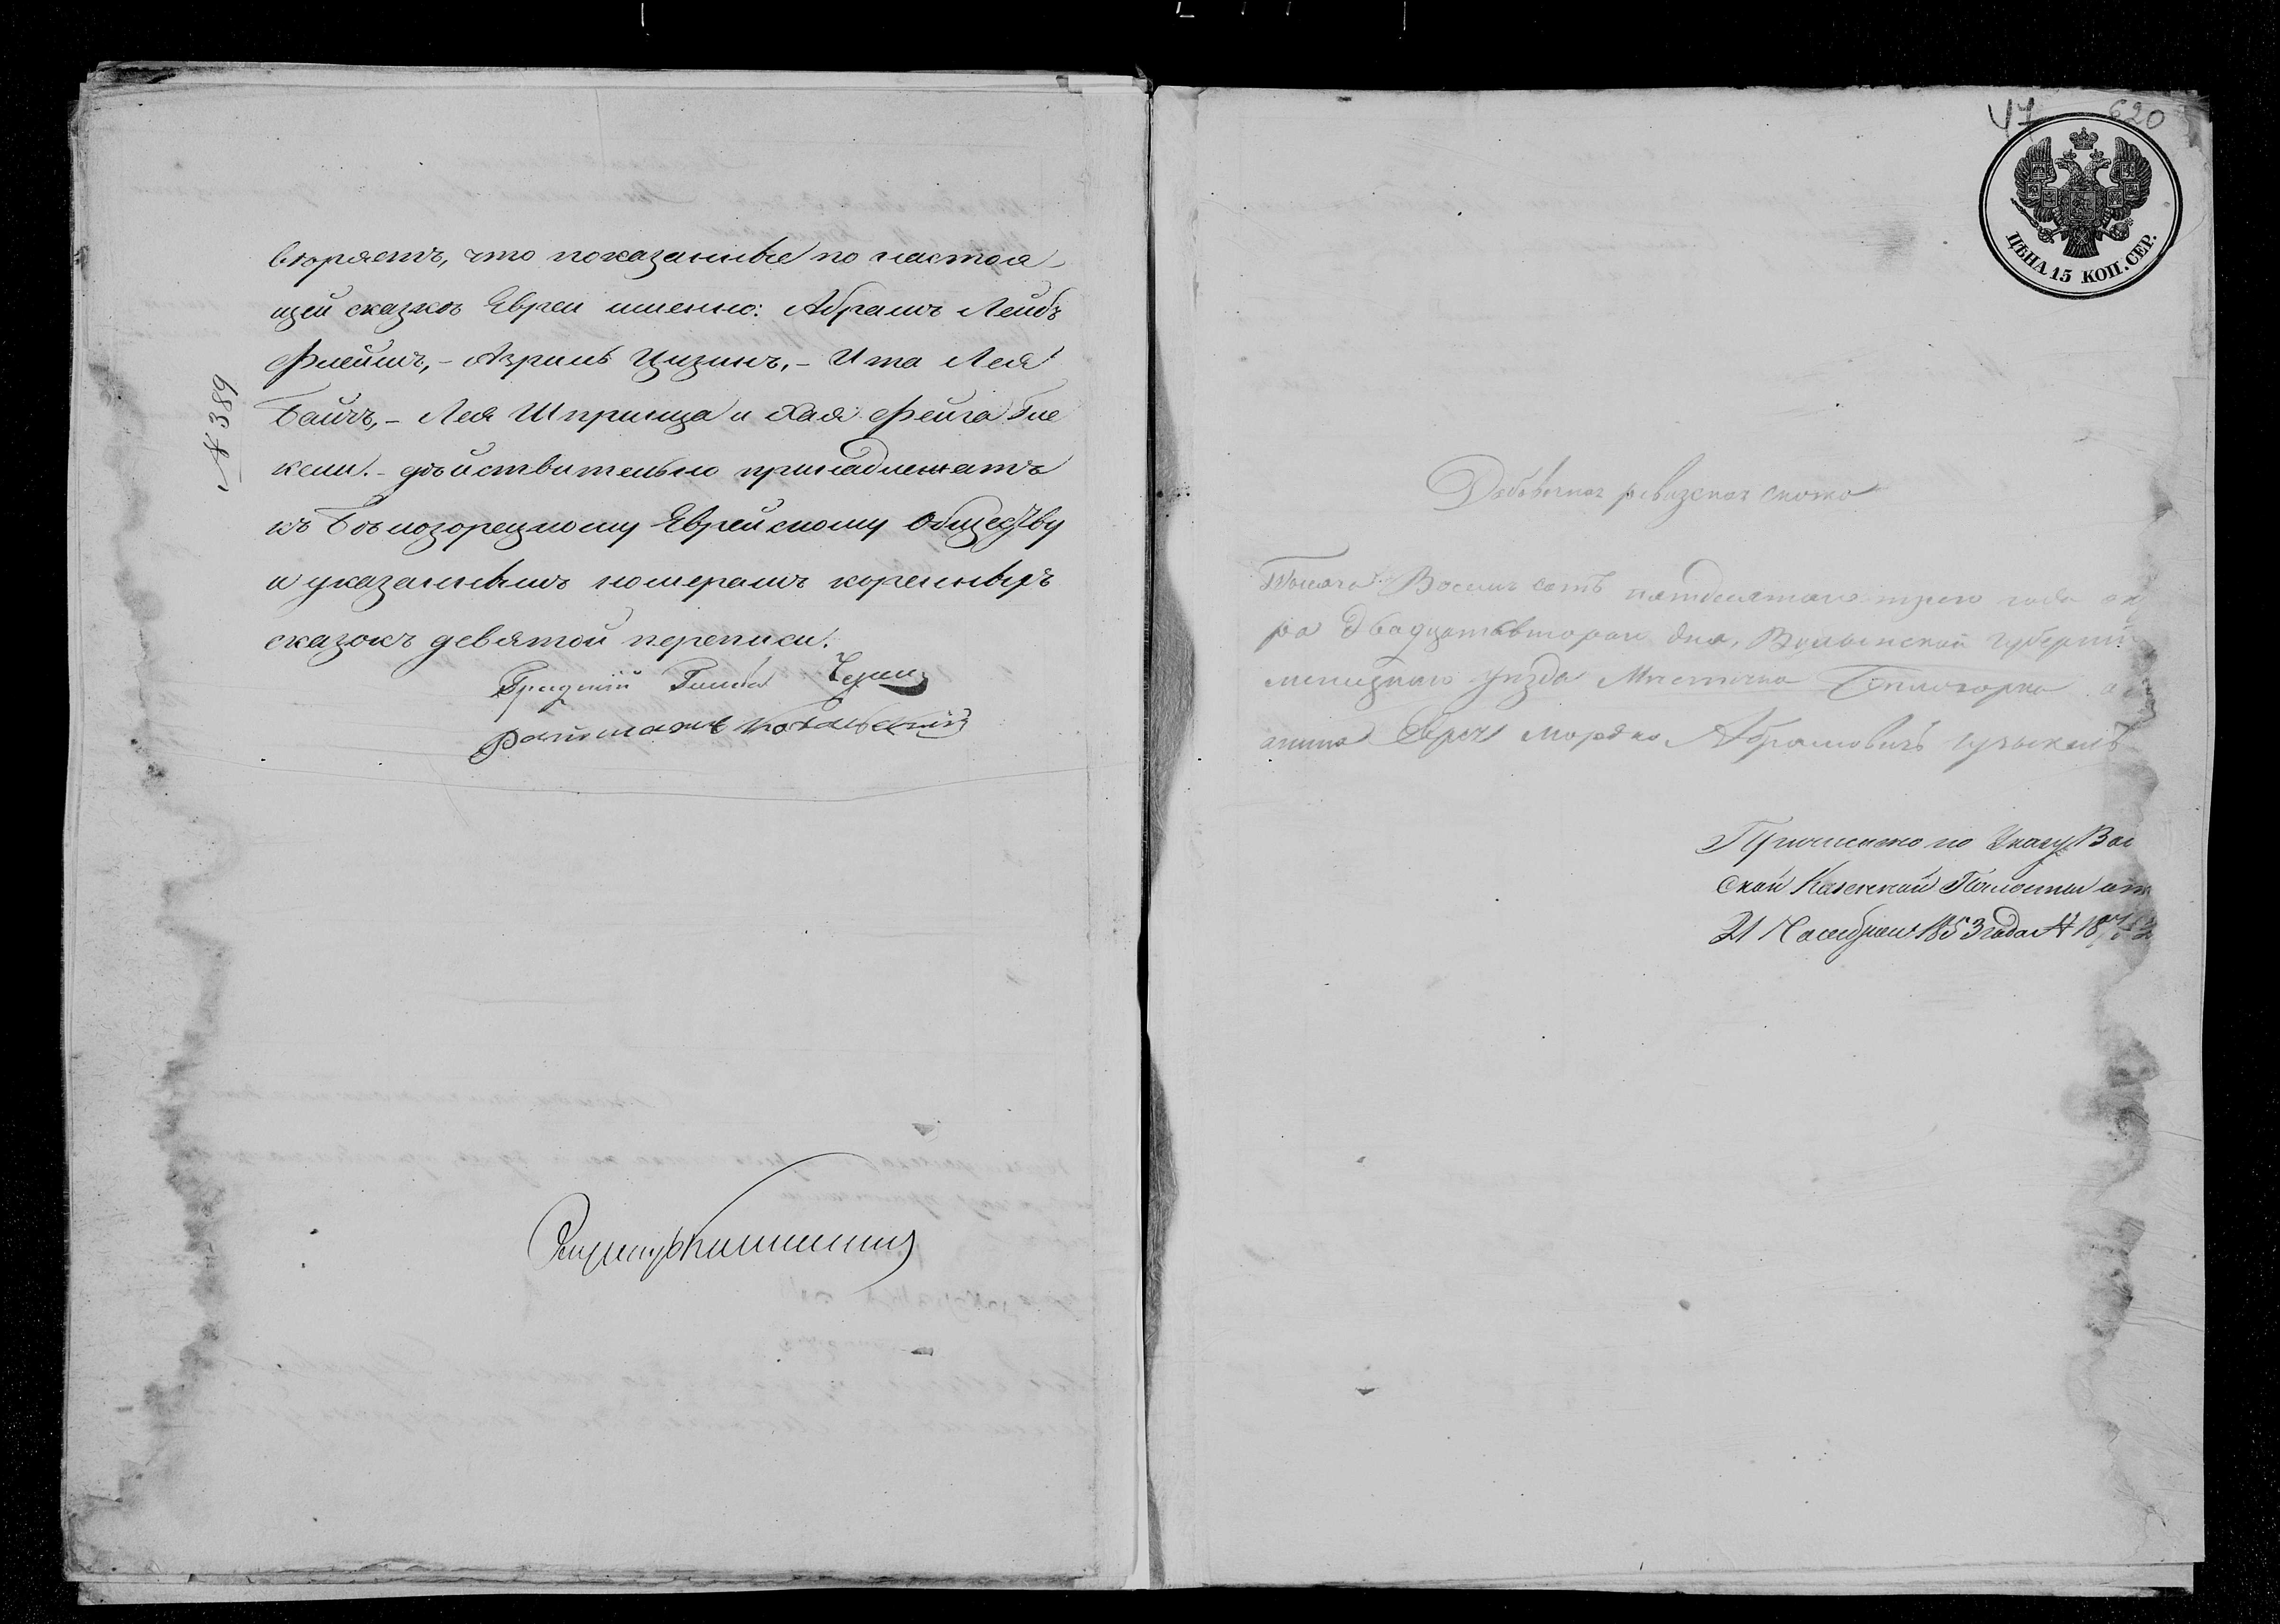 вѣряетъ, что показанные по настоя-
щей сказкѣ Евреи именно: Абрамъ Лейбъ
Флейшъ, - Азриль Цизинъ, - Ита Лея
Байчъ, - Лея Шпринца и Хая Фейга Гле
кели. - дѣйствительно принадлежатъ
къ Бѣлозорецкому Еврейскому Обществу
и указаннымъ номерамъ коренныхъ
сказокъ девятой переписи.
Градскій Глава
Ратманъ Ковальскій
№ 389
47 620
ЦѢНА 15 КОП. СЕР.
Добавочная ревизская сказка
Тысяча Восемь сотъ пятдесятаго трего года ок
ра Двадцать второго дня, Волынской Губерніи
менецкаго уѣзда Мѣстечка Белозорка
анина Еврея Мордко Абрамовичъ
Причислено по Указу Вол
ской Казенной Палаты отъ
21 Ноября 1853 года №